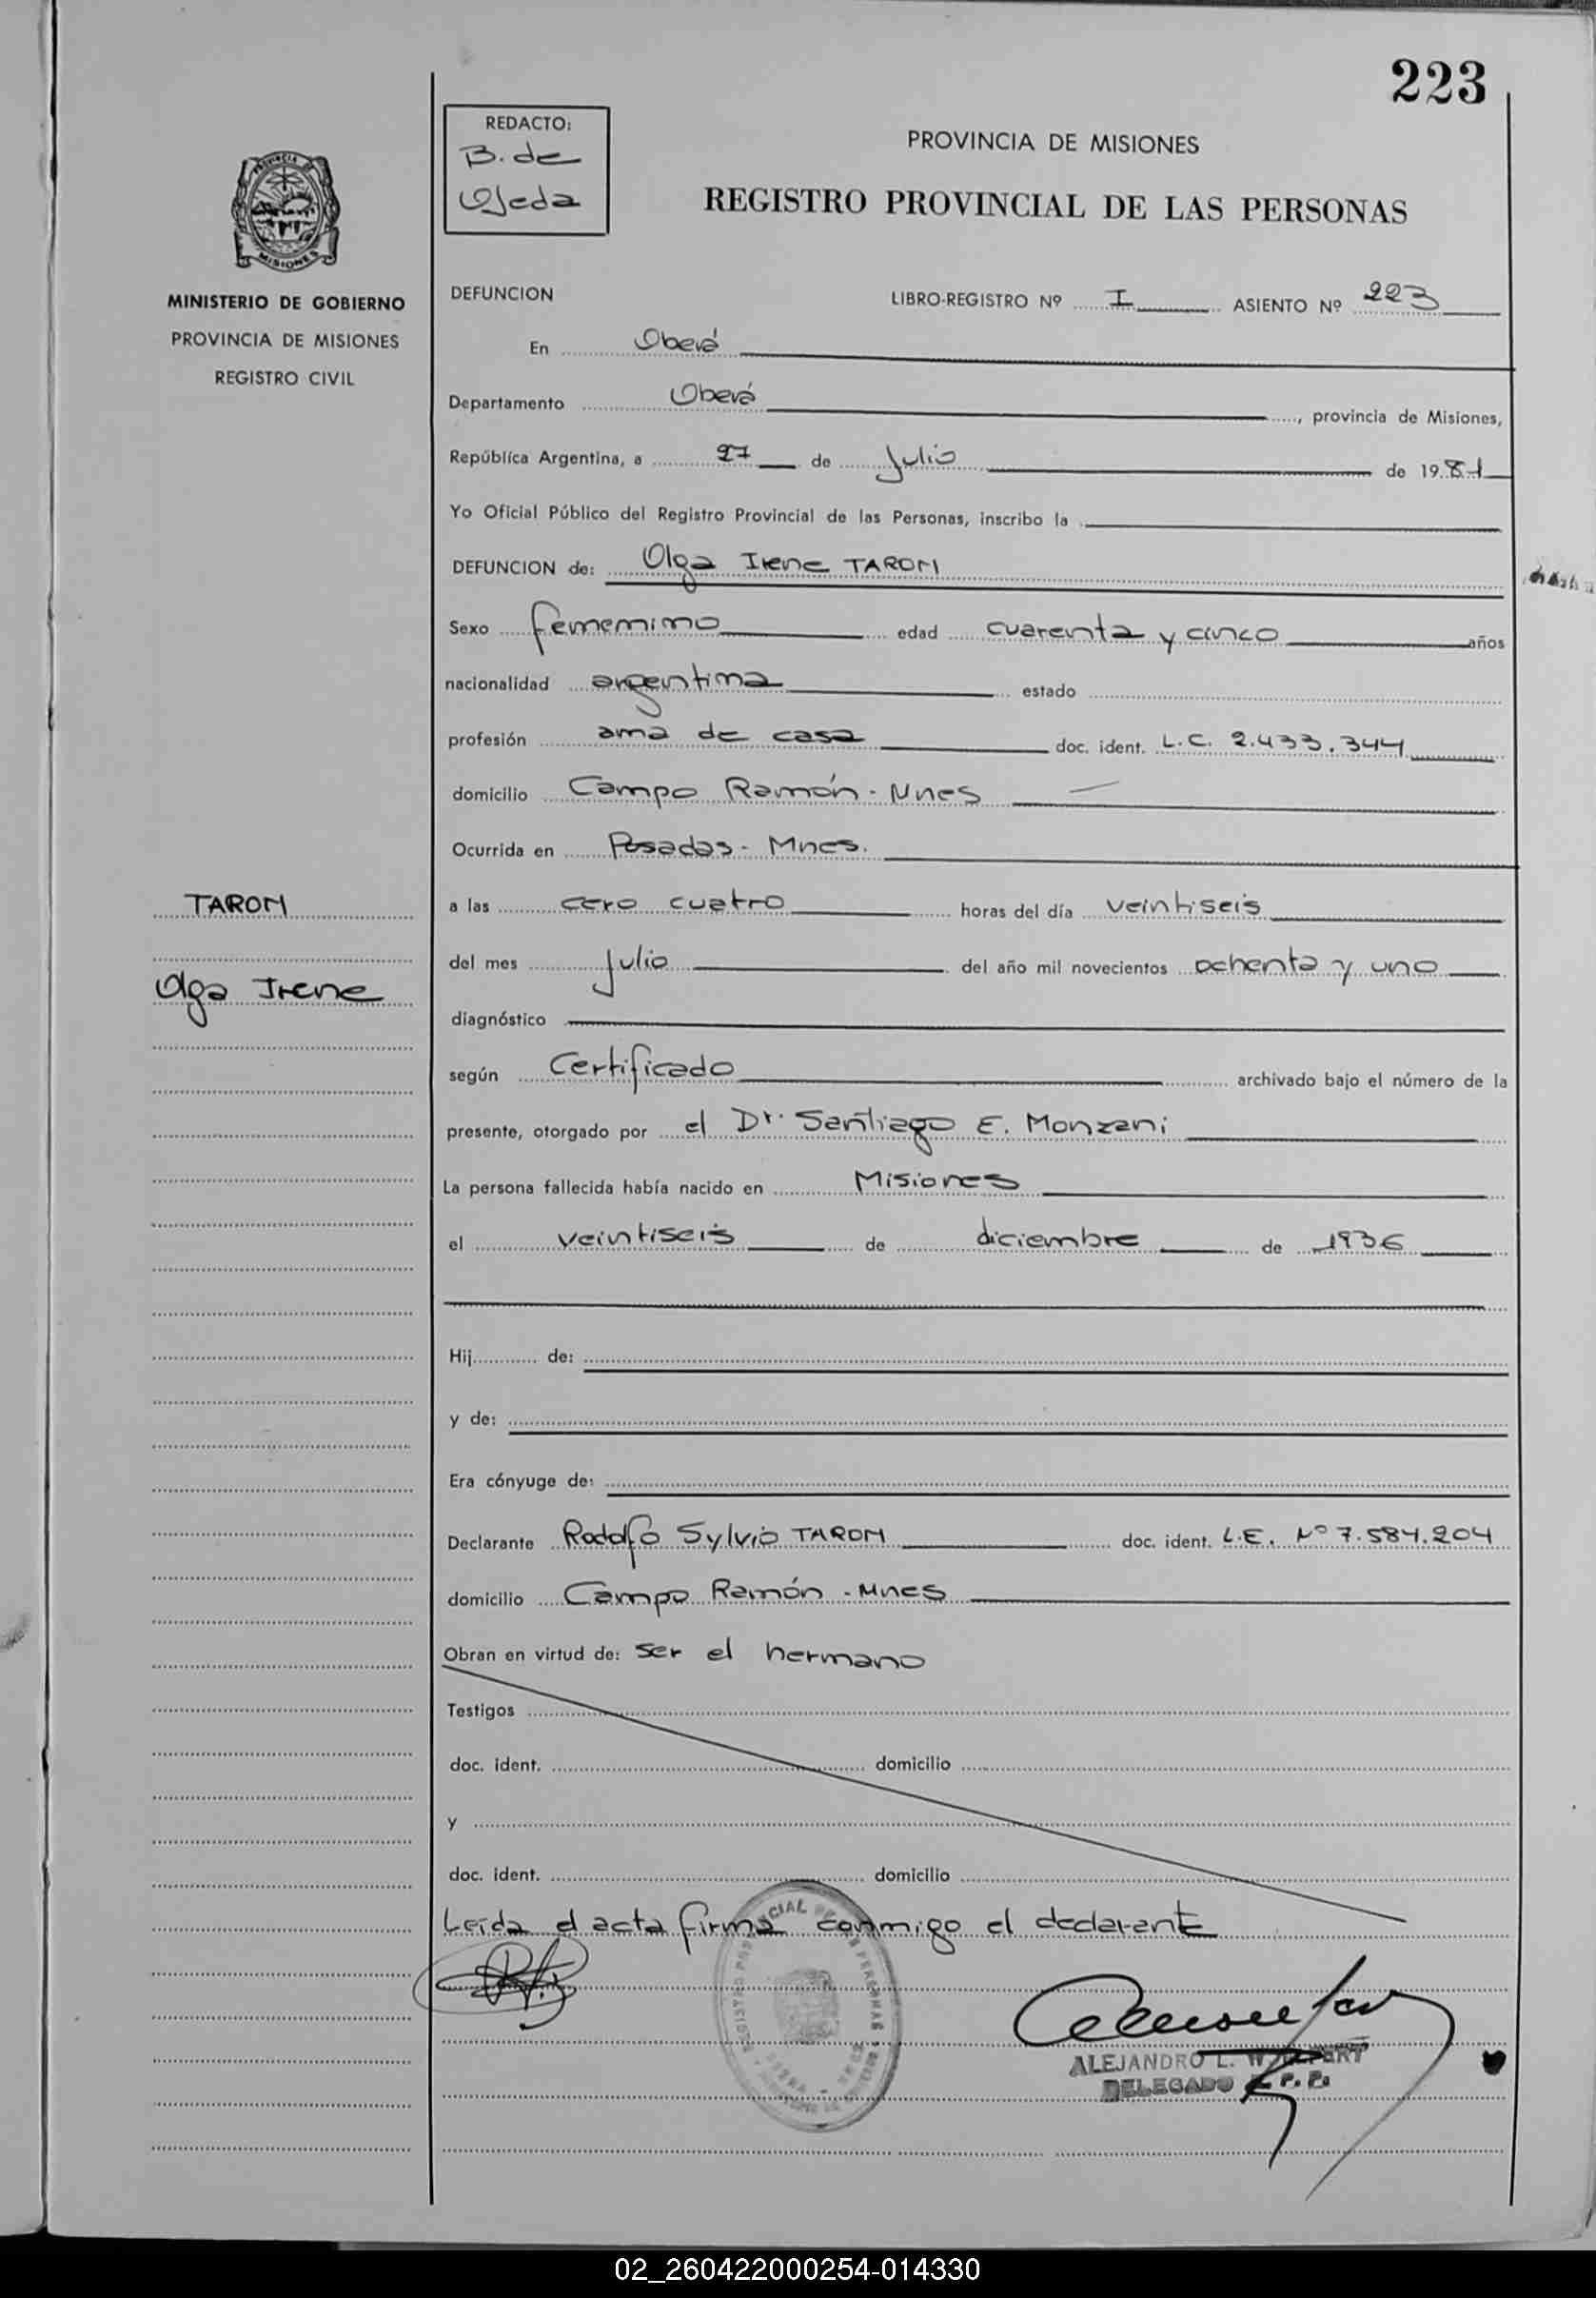 223
REDACTO:
B. de
Ojeda
PROVINCIA DE MISIONES
REGISTRO PROVINCIAL DE LAS PERSONAS
MISIONES
MINISTERIO DE GOBIERNO
PROVINCIA DE MISIONES
REGISTRO CIVIL
DEFUNCION LIBRO-REGISTRO Nº I ASIENTO Nº 223
En Oberá
Departamento Oberá, provincia de Misiones,
República Argentina, a 27 de Julio de 1981
Yo Oficial Público del Registro Provincial de las Personas, inscribo la
DEFUNCION de: Olga Irene TAROM
Sexo femenino edad cuarenta y cinco años
nacionalidad argentina estado
profesión ama de casa doc. ident. L.C. 2.433.344
domicilio Campo Ramón - Mnes
Ocurrida en Posadas - Mnes.
TAROM
Olga Irene
a las cero cuatro horas del día veintiseis
del mes Julio del año mil novecientos ochenta y uno
diagnóstico
según Certificado archivado bajo el número de la
presente, otorgado por el Dr. Santiago E. Monzani
La persona fallecida había nacido en Misiones
el veintiseis de diciembre de 1936
Hij de:
y de:
Era cónyuge de:
Declarante Rodolfo Sylvio TAROM doc. ident. L.E. Nº 7.584.204
domicilio Campo Ramón - Mnes
Obran en virtud de: ser el hermano
Testigos
doc. ident. domicilio
y
doc. ident. domicilio
Leida el acta firma conmigo el declarante
ALEJANDRO L.
DELEGADO R. P. P.
02_260422000254-014330